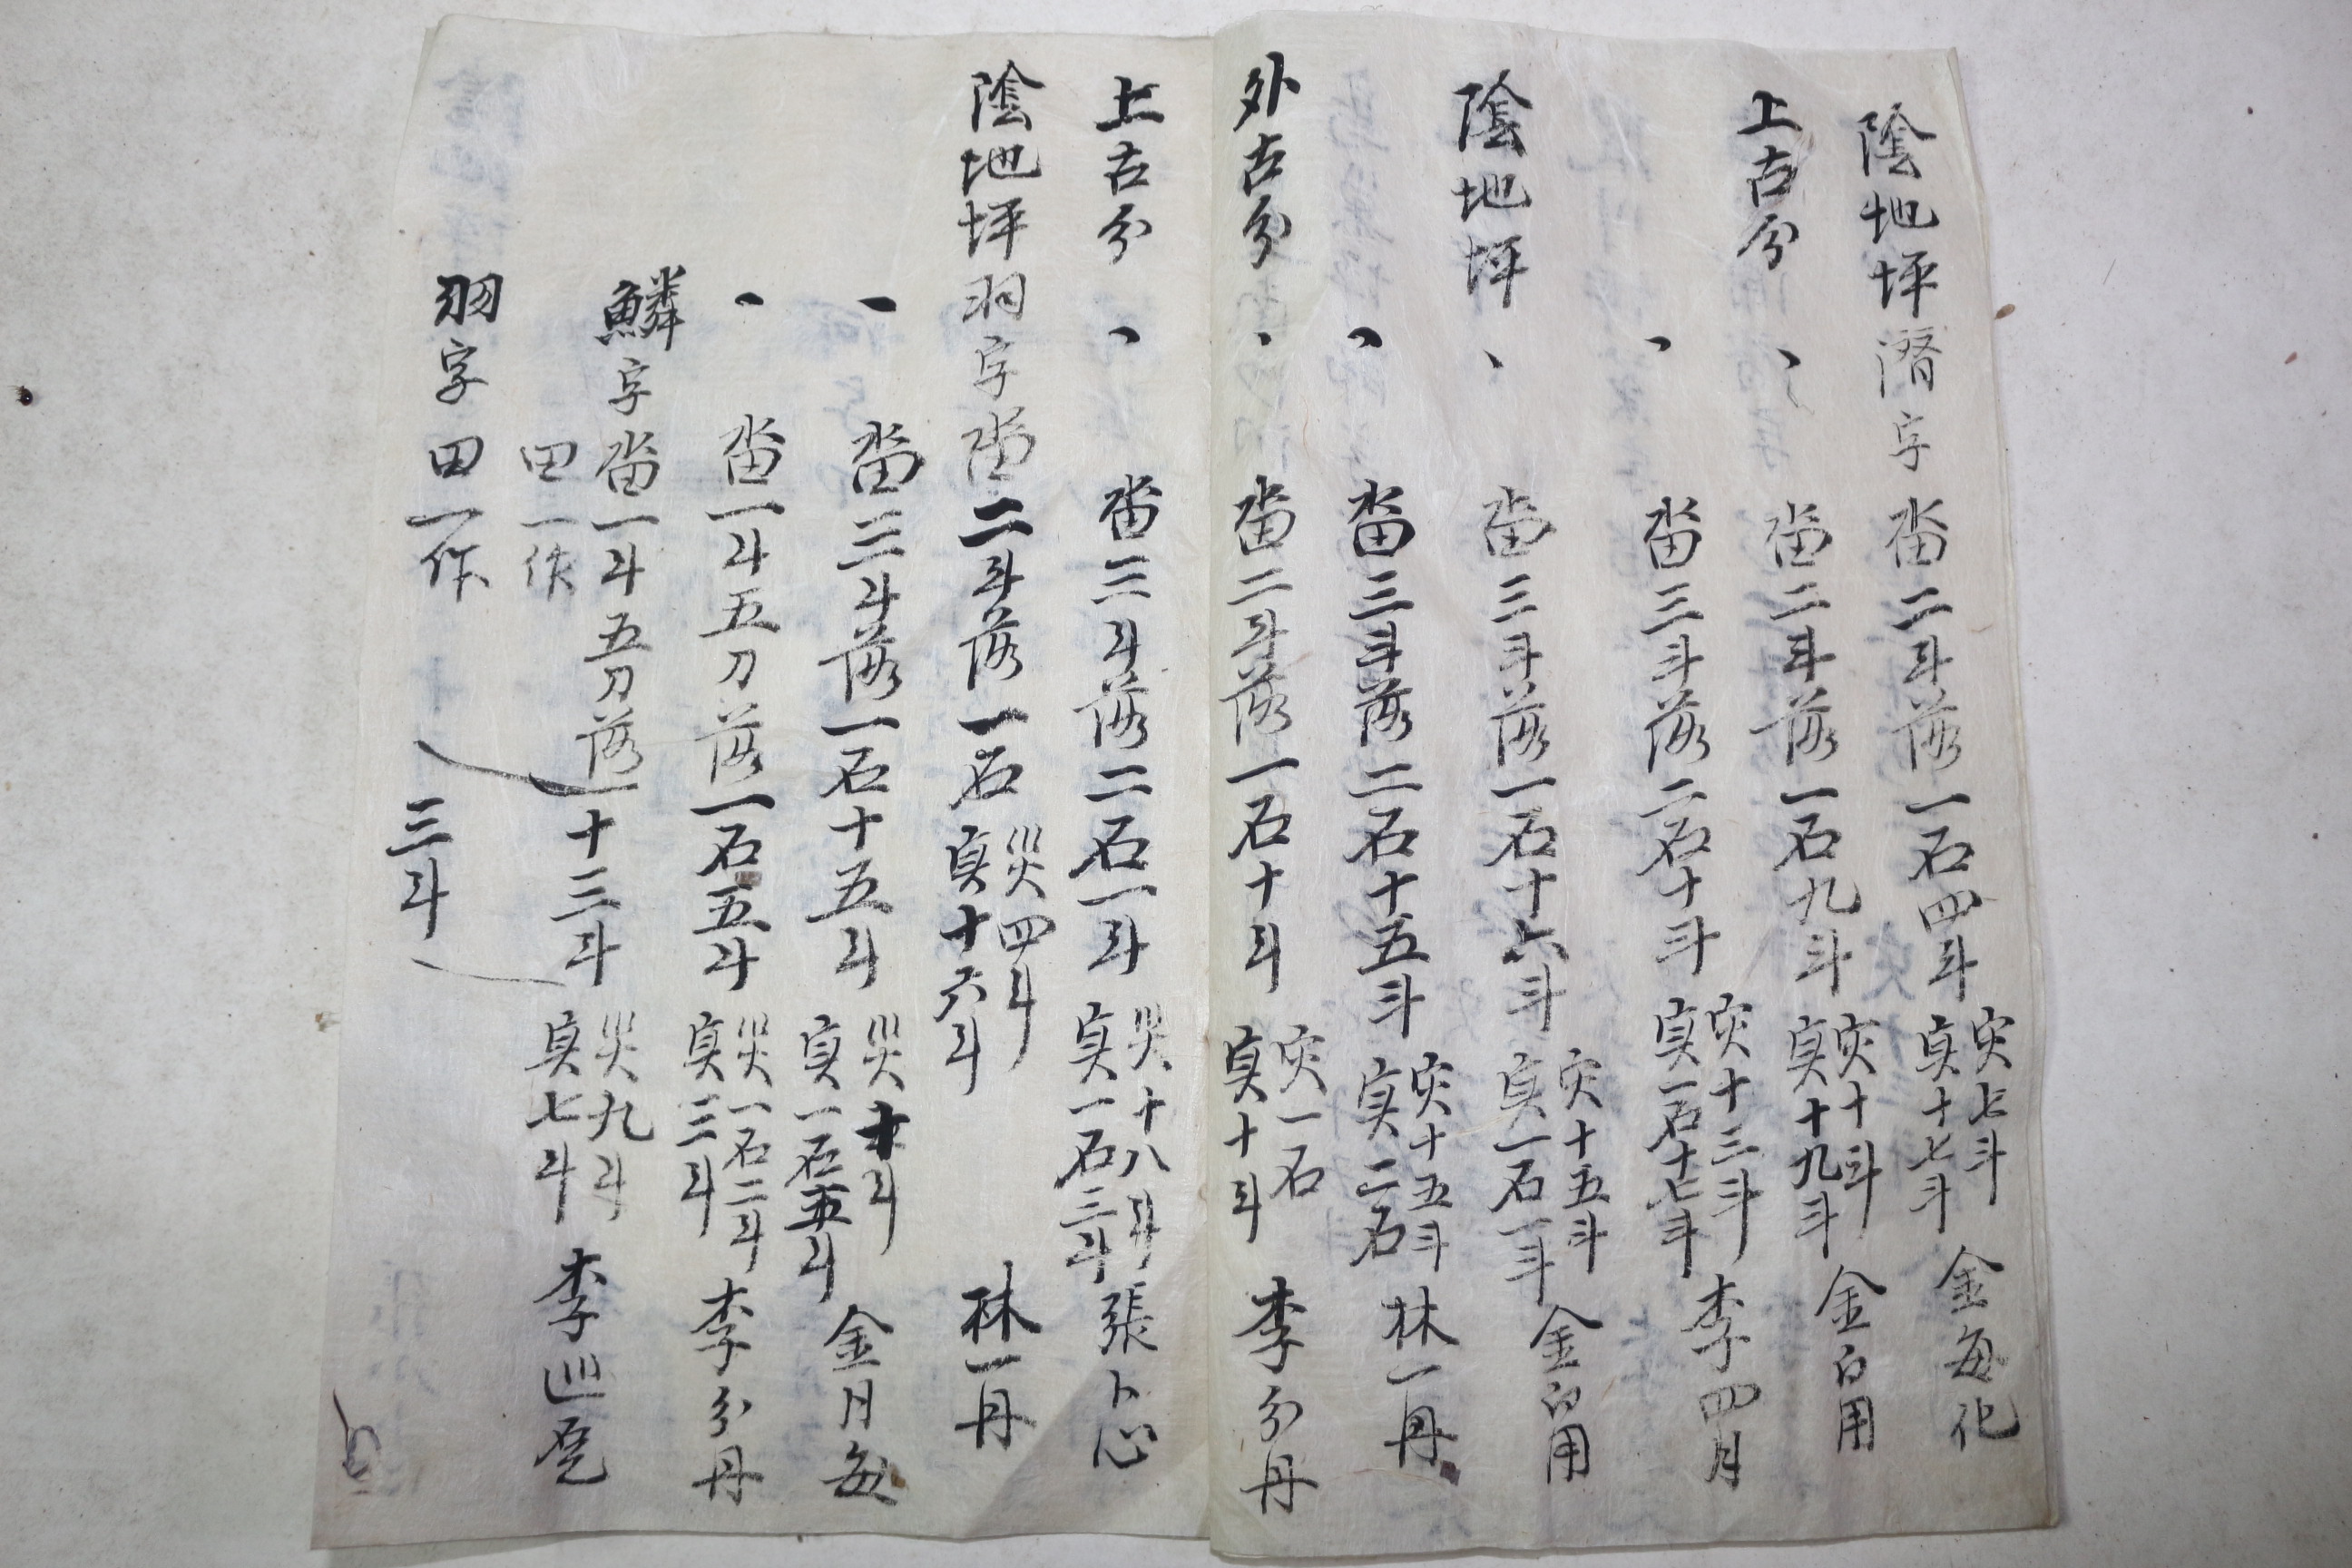 陰地坪潛字畓二斗落一石四斗 灾七斗 实十七斗 金每化
上古分 丶 畓二斗落一石九斗 灾十斗 实十九斗 金白用
丶 畓三斗落二石十斗 灾十三斗 实一石十七斗 李四月
陰地坪 丶 畓三斗落一石十六斗 灾十五斗 实一石一斗 金白用
丶 畓三斗落二石十五斗 灾十五斗 实二石 林一丹
外古分 丶 畓二斗落一石十斗 灾一石 实十斗 李分丹
上古分 丶 畓三斗落二石一斗 災十八斗 实一石三斗 張卜心
陰地坪羽字畓二斗落一石 災四斗 实十六斗 林一丹
丶 畓三斗落一石十五斗 災十斗 实一石五斗 金月每
丶 畓一斗五刀落一石五斗 災一石二斗 实三斗 李分丹
鱗字畓一斗五刀落 十三斗 災九斗 实七斗 李巡
田一作
羽字田一作 三斗